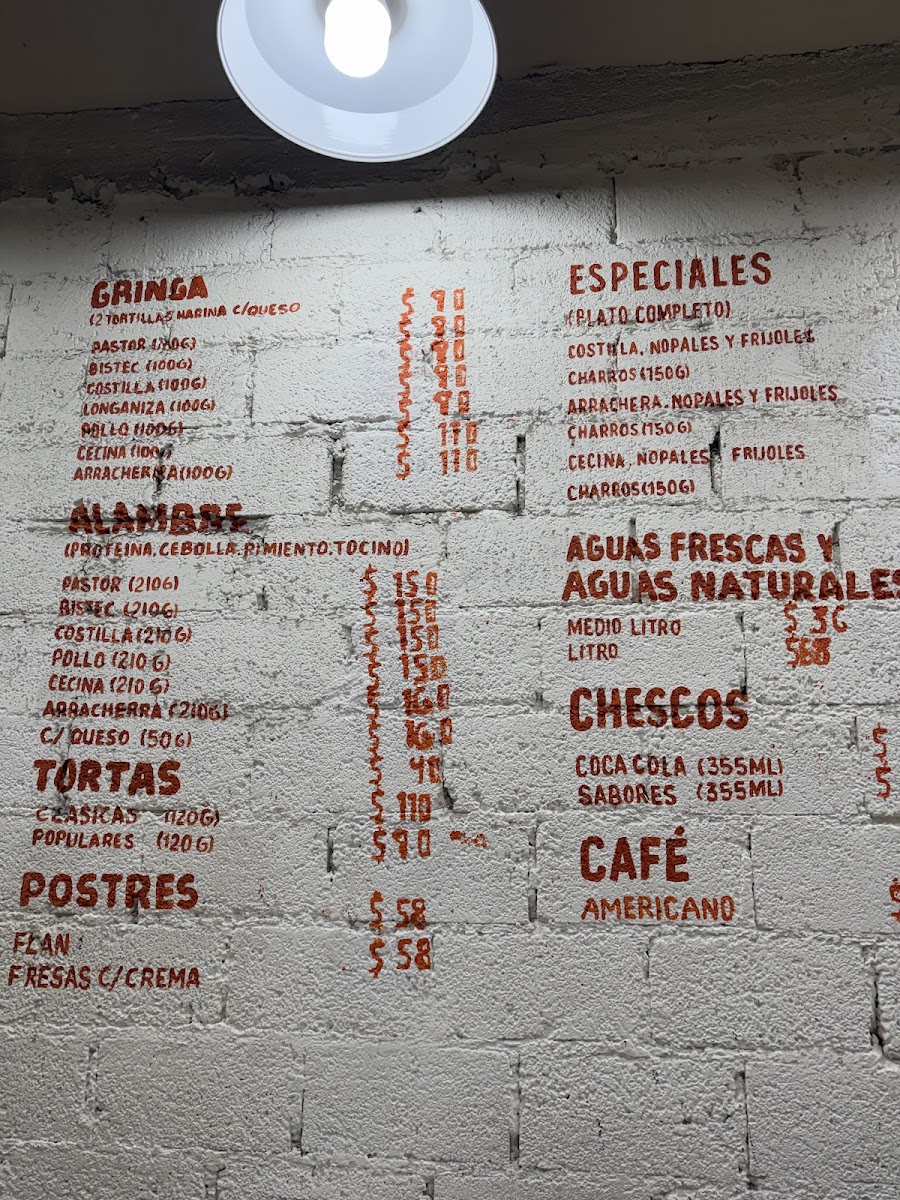 GRINGA
(2 TORTILLAS HARINA C/QUESO
PASTOR (100G) $ 90
BISTEC (100G) $ 90
COSTILLA (100G) $ 90
LONGANIZA (100G) $ 90
POLLO (100G) $ 90
CECINA (100G) $ 110
ARRACHERRA (100G) $ 110
ALAMBRE
(PROTEINA, CEBOLLA, PIMIENTO, TOCINO)
PASTOR (210G) $ 150
BISTEC (210G) $ 150
COSTILLA (210G) $ 150
POLLO (210G) $ 150
CECINA (210G) $ 160
ARRACHERRA (210G) $ 160
C/ QUESO (50G) $ 40
TORTAS
CLASICAS (120G) $ 110
POPULARES (120G) $ 90
POSTRES
FLAN $ 58
FRESAS C/CREMA $ 58
ESPECIALES
(PLATO COMPLETO)
COSTILLA, NOPALES Y FRIJOLES
CHARROS (150G)
ARRACHERA, NOPALES Y FRIJOLES
CHARROS (150G)
CECINA, NOPALES FRIJOLES
CHARROS (150G)
AGUAS FRESCAS Y
AGUAS NATURALES
MEDIO LITRO $ 36
LITRO $68
CHESCOS
COCA COLA (355ML) $
SABORES (355ML) $
CAFÉ
AMERICANO $